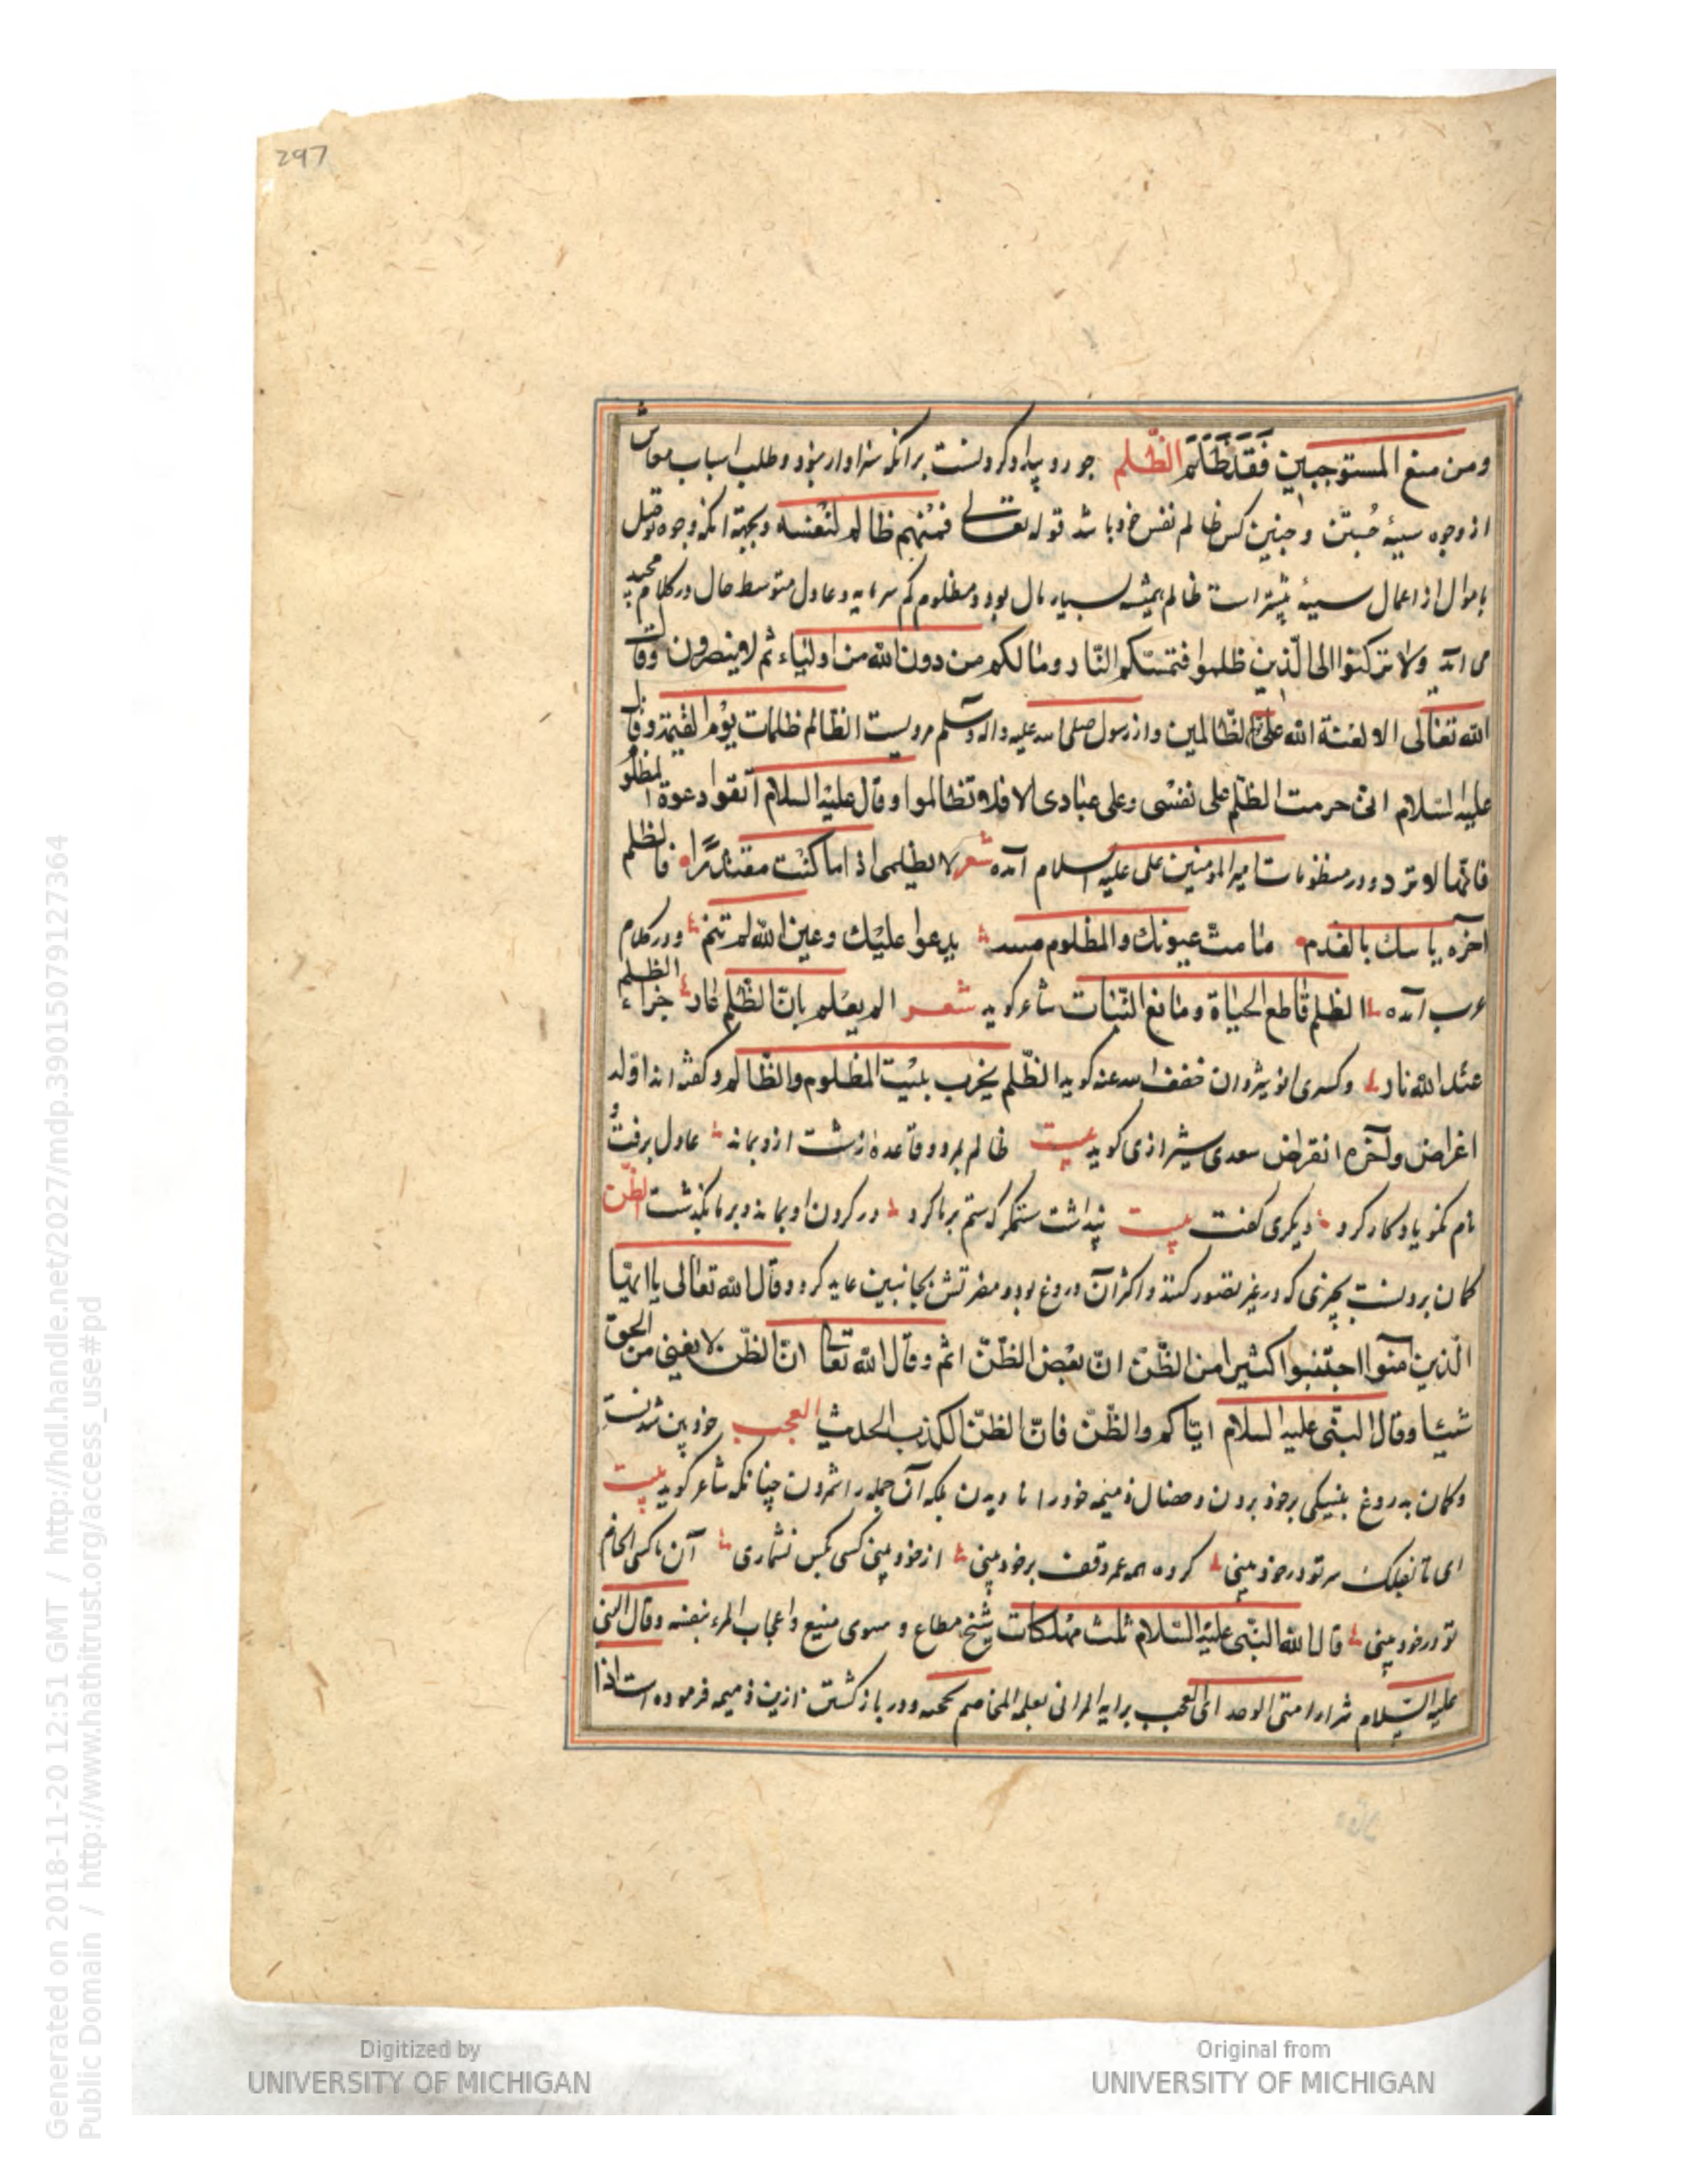 297
ومن منع المستوجبین فقد ظلم الظلم جور و بیداد کردنست برانکه سزاوار نبود و طلب اسباب معاش
از وجوه سیئه جستن و چنین کس ظالم نفس خود باشد قوله تعالی فمنهم ظالم لنفسه و بجهة انکه وجوه توصل
باموال از اعمال سیئه بیشتر است ظالم همیشه بسیار مال بود و مظلوم کم سرمایه و عادل متوسط حال در کلام مجید
می اید ولا ترکنوا الی الذین ظلموا فتمسکم النار وما لکم من دون الله من اولیاء ثم لا ینصرون وقال
الله تعالی الا لعنة الله علی الظالمین و از رسول صلی الله علیه واله وسلم مرویست الظالم ظلمات یوم القیمة وقال
علیه السلام انی حرمت الظلم علی نفسی وعلی عبادی الا فلا تظالموا وقال علیه السلام اتقوا دعوة المظلوم
فانها لا ترد و در منظومات امیر المومنین علی علیه السلام آمده شعر لا تظلمی اذ اما کنت مقتدرا فالظلم
آخره یا بالندم نامت عیونک والمظلوم یدعوا علیک وعین الله لم تنم و در کلام
عرب آمده الظلم قاطع الحیاة ومانع النبات شاعر کوید شعر الم یعلم بان الظلم عار جزاء الظلم
عند الله نار و کسری انوشروان خفف الله عنه کوید الظلم یخرب بیت المظلوم والظالم و کفته اند اوله
اغراض ولآخره انقراض سعدی شیرازی کوید بیت ظالم بمرد و قاعده زشت ازو بماند عادل برفت و
نام نکو یادکار کرد دیکری کفت بیت پنداشت ستمکر که ستم بر ما کرد در کردن او بماند و بر ما بکذشت الظن
کمان بردنست بچیزی که در غیر تصور کنند و اکثر آن دروغ بود و مضرتش بجانبین عاید کردد قال الله تعالی یا ایها
الذین آمنوا اجتنبوا کثیرا من الظن ان بعض الظن اثم وقال الله تعالی ان الظن لا یغنی من الحق
شیئا وقال النبی علیه السلام ایاکم والظن فان الظن الکذب الحدیث العجب خودبین شدنست
و کمان بدروغ بنیکی بر خود بردن و خصال ذمیمه خود را نادیدن بلکه آن جمله را شمردن چنانکه شاعر کوید بیت
ای تا بفلک سر تو در خودبینی کرده همه عمر وقف بر خودبینی از خودبینی کسی بکس نشماری آن ناکسی
تو در خودبینی قال الله النبی علیه السلام ثلث مهلکات شح مطاع و هوی متبع و اعجاب المرء بنفسه وقال النبی
علیه السلام شرار امتی الوحد انی المعجب برایه المرائی بعلمه المخاصم بحجته و در باز کشتن ازین ذمیمه فرموده است اذا
Generated on 2018-11-20 12:51 GMT / http://hdl.handle.net/2027/mdp.39015079127364
Public Domain / http://www.hathitrust.org/access_use#pd
Digitized by
UNIVERSITY OF MICHIGAN
Original from
UNIVERSITY OF MICHIGAN